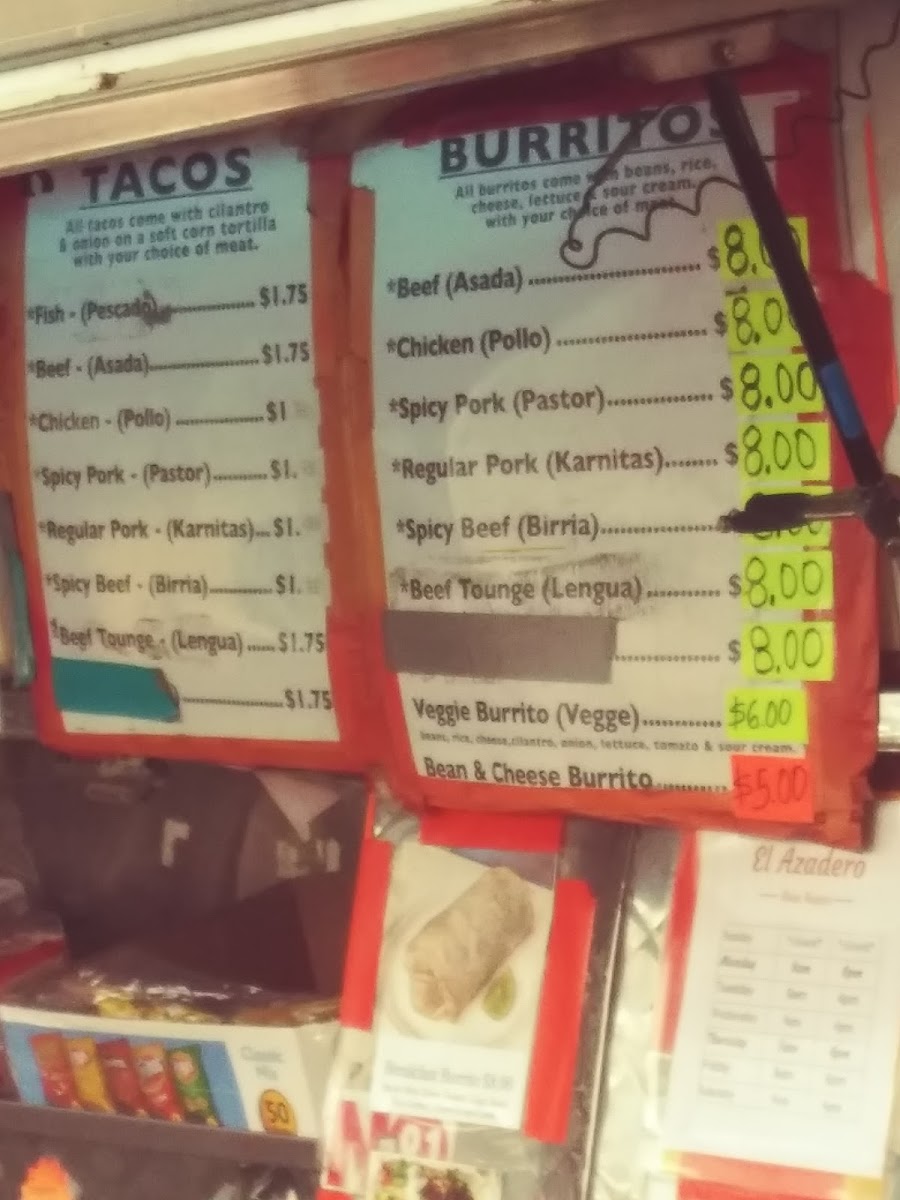 TACOS
All tacos come with cilantro
& onion on a soft corn tortilla
with your choice of meat.
*Fish - (Pescado)................$1.75
*Beef - (Asada)......................$1.75
*Chicken - (Pollo)................$1
*Spicy Pork - (Pastor)...........$1.
*Regular Pork - (Karnitas)...$1.
*Spicy Beef - (Birria)............$1.
*Beef Tounge - (Lengua)......$1.75
....................$1.75
BURRITOS
All burritos come beans, rice,
cheese, lettuce & sour cream.
with your choice of meat.
*Beef (Asada)..............................$8.00
*Chicken (Pollo)..........................$8.00
*Spicy Pork (Pastor)................$8.00
*Regular Pork (Karnitas)........$8.00
*Spicy Beef (Birria)..................8.00
*Beef Tounge (Lengua)...........$8.00
................$8.00
Veggie Burrito (Vegge)............$6.00
beans, rice, cheese, cilantro, onion, lettuce, tomato & sour cream.
Bean & Cheese Burrito...........$5.00
El Azadero
Classic
Mix
50
Breakfast Burrito
Monday
Tuesday
Thursday
Friday